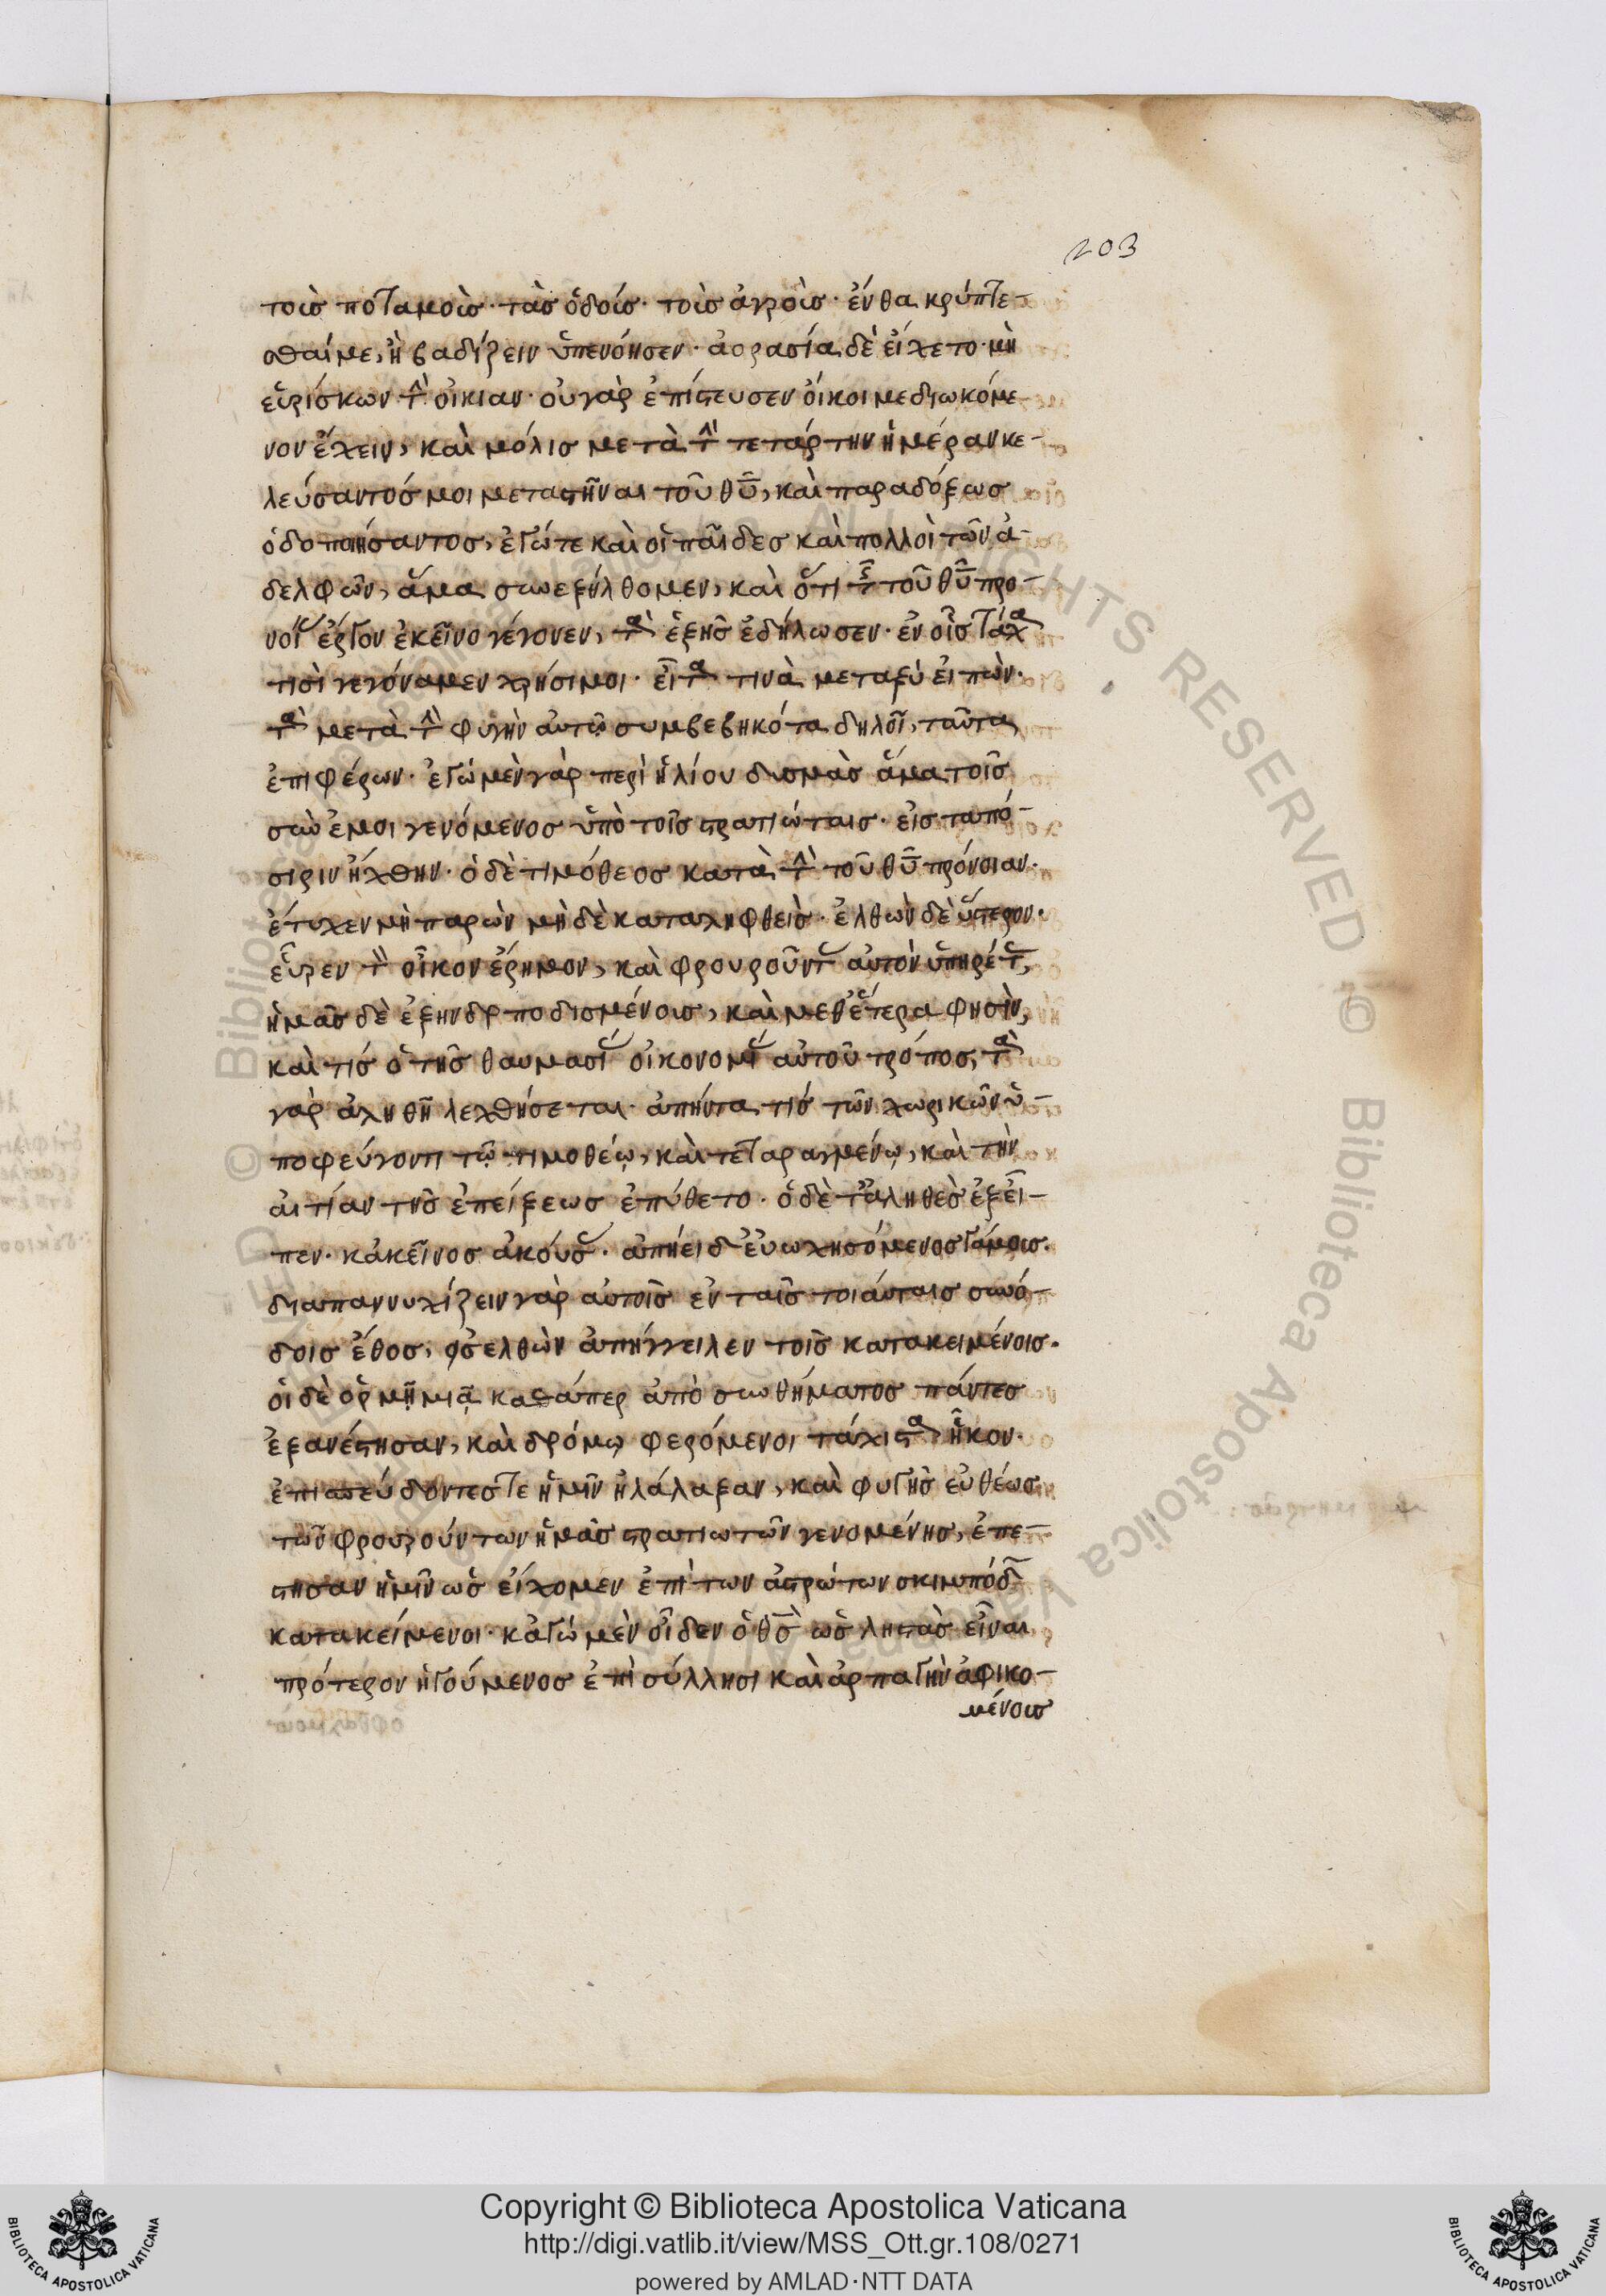 203
τοῖς ποταμοῖς· τὰς ὁδοὺς· τοῖς ἀγροῖς· ἔνθα κρύπτε-
σθαί με, ἢ βαδίζειν ὑπενόησεν· ἀορασία δὲ εἴχετο μὴ
εὑρίσκων τὴν οἰκίαν· οὐ γὰρ ἐπίστευσεν οἴκοι με διωκόμε-
νον ἔχειν, καὶ μόλις μετὰ τὴν τετάρτην ἡμέραν κε-
λεύσαντός μοι μεταστῆναι τοῦ θῦ, καὶ παραδόξως
ὁδοποιήσαντος, ἐγώ τε καὶ οἱ παῖδες καὶ πολλοὶ τῶν ἀ-
δελφῶν, ἅμα συνεξήλθομεν, καὶ ὅτι τῆς τοῦ θῦ προ-
νοίας ἔργον ἐκεῖνο γέγονεν, τὰ ἑξῆς ἐδήλωσεν· ἐν οἷς τάχα
τισὶ γεγόναμεν χρήσιμοι· εἶτα τινὰ μεταξὺ εἰπὼν·
τὰ μετὰ τὴν φυγὴν αὐτῷ συμβεβηκότα δηλοῖ, ταῦτα
ἐπιφέρων· ἐγὼ μὲν γὰρ περὶ ἡλίου δυσμὰς ἅμα τοῖς
σὺν ἐμοὶ γενόμενος ὑπὸ τοῖς στρατιώταις· εἰς ταπό-
σιριν ἤχθην· ὁ δὲ τιμόθεος κατὰ τὴν τοῦ θῦ πρόνοιαν·
ἔτυχεν μὴ παρὼν μὴ δὲ καταληφθεὶς· ἐλθὼν δὲ ὕστερον·
εὗρεν τὸν οἶκον ἔρημον, καὶ φρουροῦντας αὐτὸν ὑπηρέτας,
ἡμᾶς δὲ ἐξηνδραποδισμένους, καὶ μεθ' ἕτερα φησὶν,
καὶ τίς ὁ τῆς θαυμασίας οἰκονομίας αὐτοῦ τρόπος, τὰ
γὰρ ἀληθῆ λεχθήσεται· ἀπήντα τίς τῶν χωρικῶν ὑ-
ποφεύγοντι τῷ τιμοθέῳ, καὶ τεταραγμένῳ, καὶ τὴν
αἰτίαν τῆς ἐπείξεως ἐπύθετο· ὁ δὲ τἀληθὲς ἐξεῖ-
πεν· κἀκεῖνος ἀκούσας· ἀπῄει δ' εὐωχησόμενος γάμους·
διαπαννυχίζειν γὰρ αὐτοῖς ἐν ταῖς τοιαύταις συνό-
δοις ἔθος, εἰσελθὼν ἀπήγγειλεν τοῖς κατακειμένοις·
οἱ δὲ ὁρμῇ μιᾷ καθάπερ ἀπὸ συνθήματος πάντες
ἐξανέστησαν, καὶ δρόμῳ φερόμενοι τάχιστα ἧκον·
ἐπισπεύδοντές τε ἡμῖν ἠλάλαξαν, καὶ φυγῆς εὐθέως
τῶν φρουρούντων ἡμᾶς στρατιωτῶν γενομένης, ἐπέ-
στησαν ἡμῖν ὡς εἴχομεν ἐπὶ τῶν ἀστρώτων σκιμπόδων
κατακείμενοι· κἀγὼ μὲν οἶδεν ὁ θς ὡς λῃστὰς εἶναι
πρότερον ἡγούμενος ἐπὶ σύλλησι καὶ ἁρπαγὴν ἀφικο-
μένους
Copyright © Biblioteca Apostolica Vaticana
http://digi.vatlib.it/view/MSS_Ott.gr.108/0271
powered by AMLAD·NTT DATA